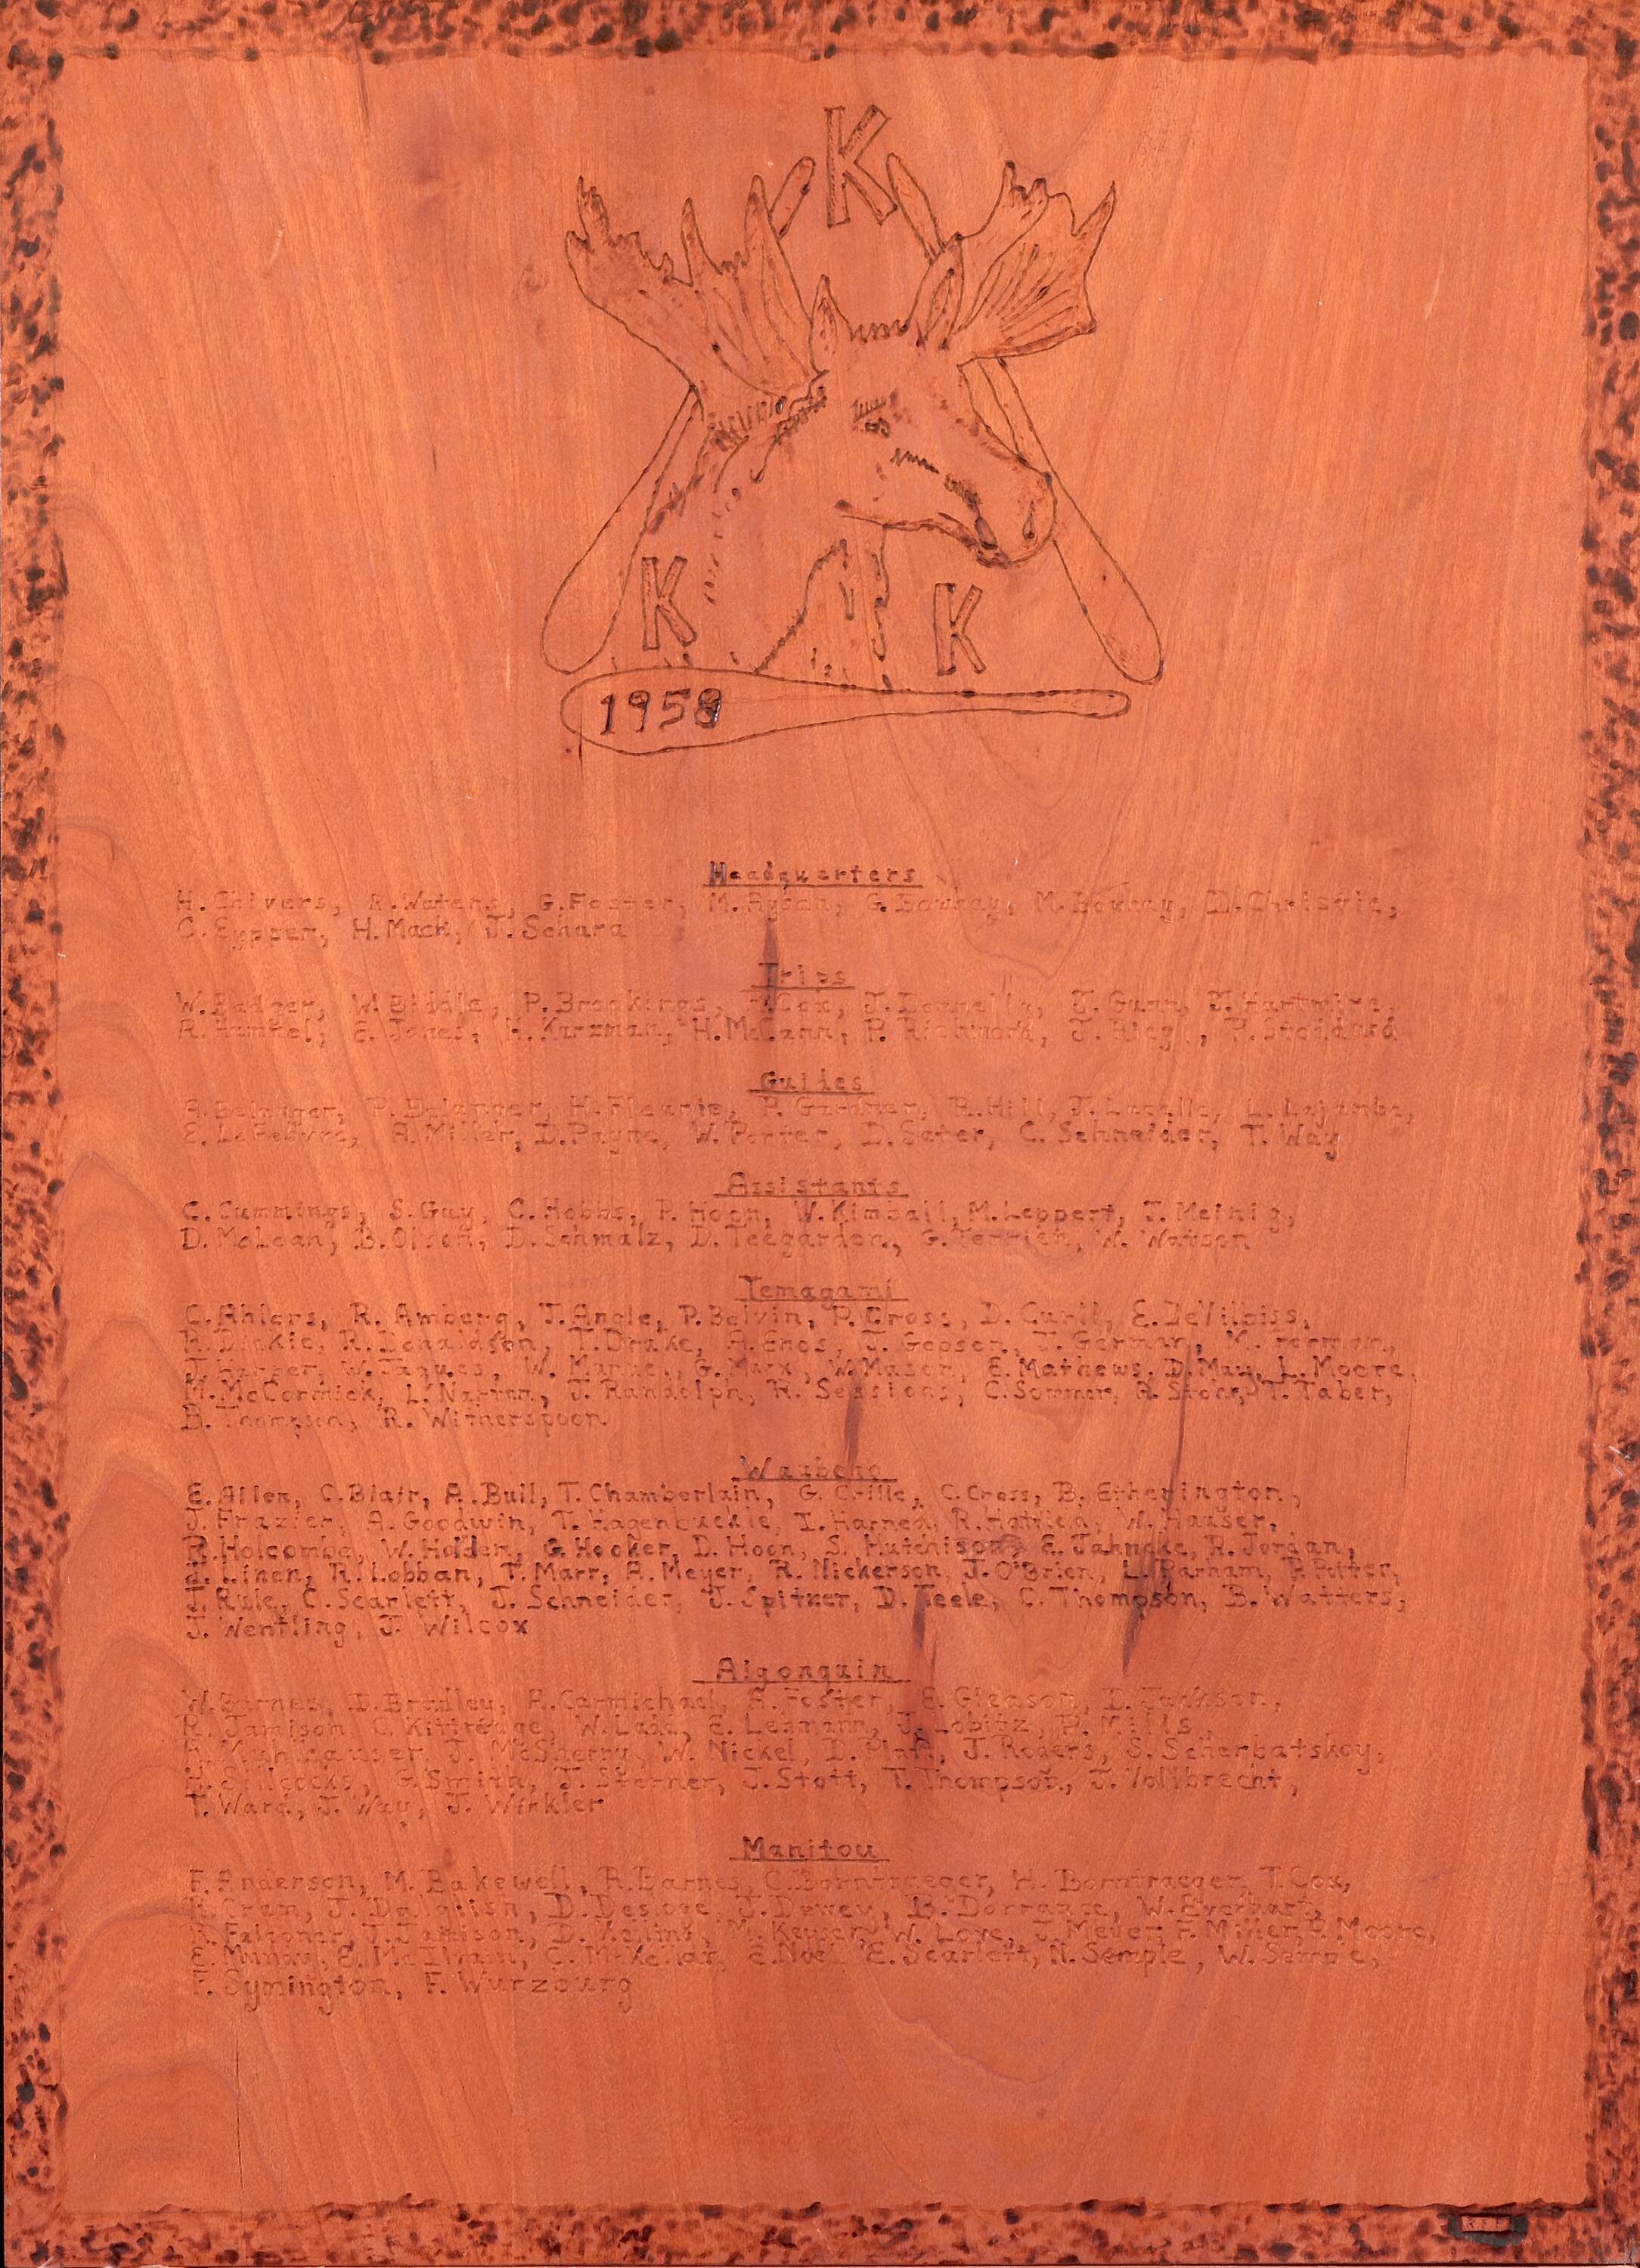 K
K K
1958
Headquarters
H. Chivers, R. Waters, G. Foster, M. Bousay, D. Christie,
C. Eypper, H. Mack, J. Schara
Trips
W. Badger, W. Biddle, P. Brookings, Cox, J. Donnelly, J. Gunn, J. Hartmire,
R. Hunkel, E. Jones, H. Kurzman, H. McCann, P. Richword, J. Riegl, P. Stoddard
Guides
A. Belanger, P. Belanger, H. Fleurie, P. Gardner, R. Hill, J. Lacelle, L. Lajambe,
E. LeFebvre, A. Miller, D. Payne, W. Porter, D. Seter, C. Schneider, T. Way
Assistants
C. Cummings, S. Guy, C. Hobbs, P. Hoon, W. Kimball, M. Leppert, J. Meinig,
D. McLean, B. Olson, D. Schmalz, D. Teegarden, G. Terrich, W. Watson
Temagami
C. Ahlers, R. Amberg, T. Angle, P. Belvin, P. Cross, D. Curll, E. DeVilbiss,
Dickie, R. Donaldson, T. Drake, A. Enos, J. Gepson, J. German,
J. Harper, W. Jaques, W. Manuel, G. Marx, W. Mason, E. Mathews, D. May, L. Moore,
M. McCormick, L. J. Randolph, R. Sessions, C. Sommer, T. Taber,
B. Thompson, R. Witherspoon
Waubeno
E. Allen, C. Blair, A. Bull, T. Chamberlain, G. Crille, C. Cross, B. Etherington,
J. Frazier, A. Goodwin, T. Hagenbuckle, I. Harned, R. Hatfield, W. Hauser,
R. Holcombe, W. Holden, G. Hooker, D. Hoon, S. Hutchison, E. Jahncke, R. Jordan,
J. Linen, R. Lobban, T. Marr, A. Meyer, R. Nickerson, J. O'Brien, L. Parham, P. Potter,
J. Rule, C. Scarlett, J. Schneider, J. Spitzer, D. Teele, C. Thompson, B. Watters,
J. Wentling, J. Wilcox
Algonquin
W. Barnes, D. Bradley, A. Carmichael, A. Foster, E. Gleason, D. Jackson,
R. Jamison, C. Kittredge, W. Ladd, E. Leamann, J. Lobitz, P. Mills,
R. Muhlhauser, J. McSherry, W. Nickel, D. Platt, J. Rogers, S. Scherbatskoy,
H. Sillcocks, G. Smith, J. Sterner, J. Stott, T. Thompson, J. Vollbrecht,
T. Ward, J. Way, J. Winkler
Manitou
F. Anderson, M. Bakewell, R. Barnes, C. Borntraeger, H. Borntraeger, T. Cox,
Cram, J. Dalglish, D. Desloge, J. Dewey, B. Dorrance, W. Everhart,
Falconer, J. Jamison, D. Kellins, M. Keyser, W. Love, J. Meyer, F. Miller, P. Moore,
E. Munay, E. McIlvain, C. McKellar, E. Noel, E. Scarlett, N. Semple, W. Semple,
F. Symington, F. Wurzburg